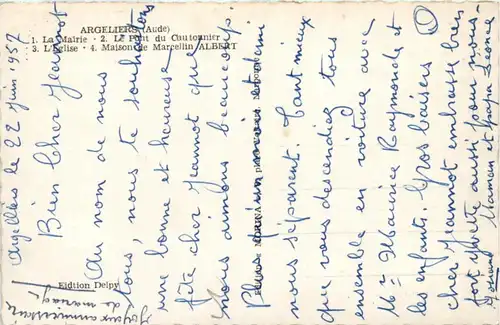 ARGELIERS (Aude)
1. La Mairie - 2. Le Pont du Cantonnier
3. L'Eglise - 4. Maison de Marcellin ALBERT
Edition Delpy
Argelliers le 22 Juin 1957
Bien Cher Jeannot
Au nom de nous
tous, nous te souhaitons
une bonne et heureuse
fête cher Jeannot que
nous aimons beaucoup.
Plus qu'un mois et demi
nous séparent. Tant mieux
que vous descendiez tous
ensemble en voiture avec
Mr Maurice Raymonde et
les enfants. Gros baisers
cher Jeannot embrasse bien
fort Yvette aussi pour nous.
Maman et papa Léonce
Joyeux anniversaire
de mariage.